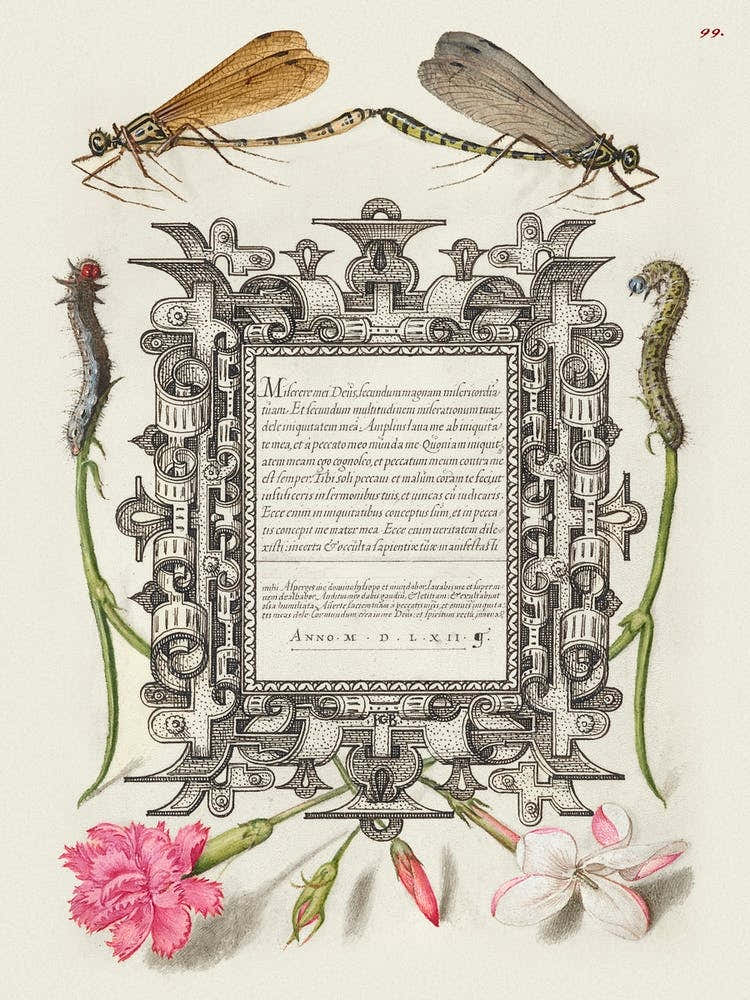 99.
Miserere mei Deus, secundum magnam misericordiā
tuam. Et secundum multitudinem miserationum tuar,
dele iniquitatem meā. Amplius laua me ab iniquita
te mea, et à peccato meo munda me. Quoniam iniquit
atem meam ego cognosco, et peccatum meum contra me
est semper. Tibi soli peccaui et malum coram te feci, ut
iustificeris in sermonibus tuis, et uincas cū iudicaris.
Ecce enim in iniquitatibus conceptus sum, et in pecca
tis concepit me mater mea. Ecce enim veritatem dile
xisti: incerta & occulta sapientiæ tuæ manifestasti
mihi. Asperges me domine hysopo et mundabor, lauabis me et super ni
uem dealbabor. Auditui meo dabis gaudiū, & letitiam: & exultabunt
ossa humiliata. Auerte faciem tuam à peccatis meis, et omnes iniquita
tes meas dele. Cor mundum crea in me Deus: et spiritum rectū innoua
ANNO. M . D . L . XII .